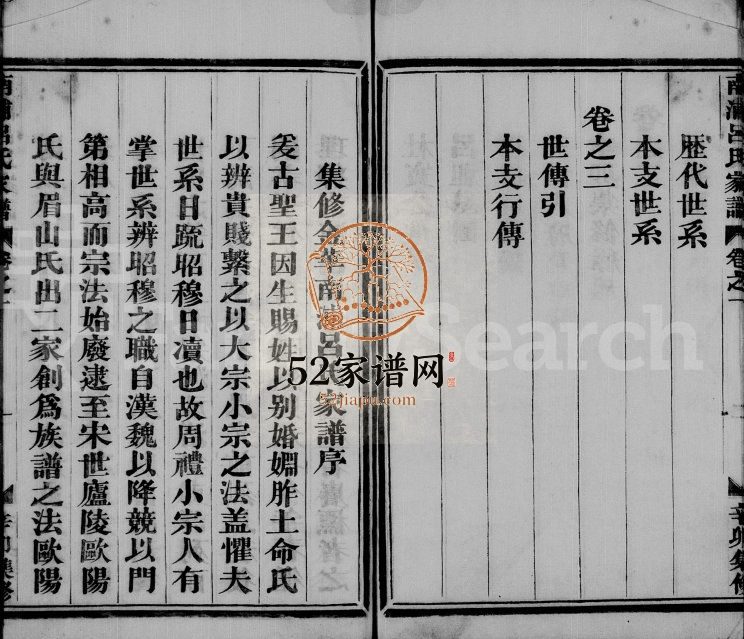 南浦呂氏家譜
卷之一
辛卯集修
歷代世系
本支世系
卷之三
世傳引
本支行傳
集修金華南浦呂氏家譜序
爰古聖王因生賜姓以別婚姻胙土命氏
以辨貴賤繫之以大宗小宗之法盖懼夫
世系日䟽昭穆日凟也故周禮小宗人有
掌世系辨昭穆之職自漢魏以降競以門
第相高而宗法始廢逮至宋世廬陵歐陽
氏與眉山氏出二家創爲族譜之法歐陽
南浦呂氏家譜
卷之一
辛卯集修
52家谱网
52jiapu.com
Search